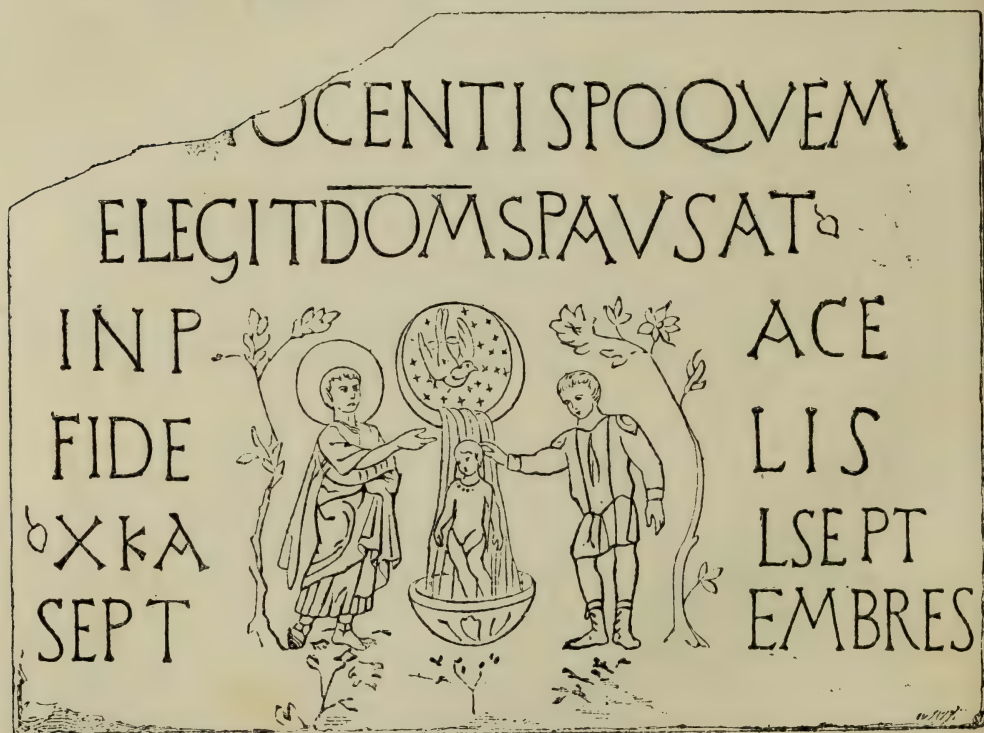 OCENTI SPO QVEM
ELEGIT DOM SPAVSAT
IN P ACE
FIDE LIS
XKA LSEPT
SEPT EMBRES